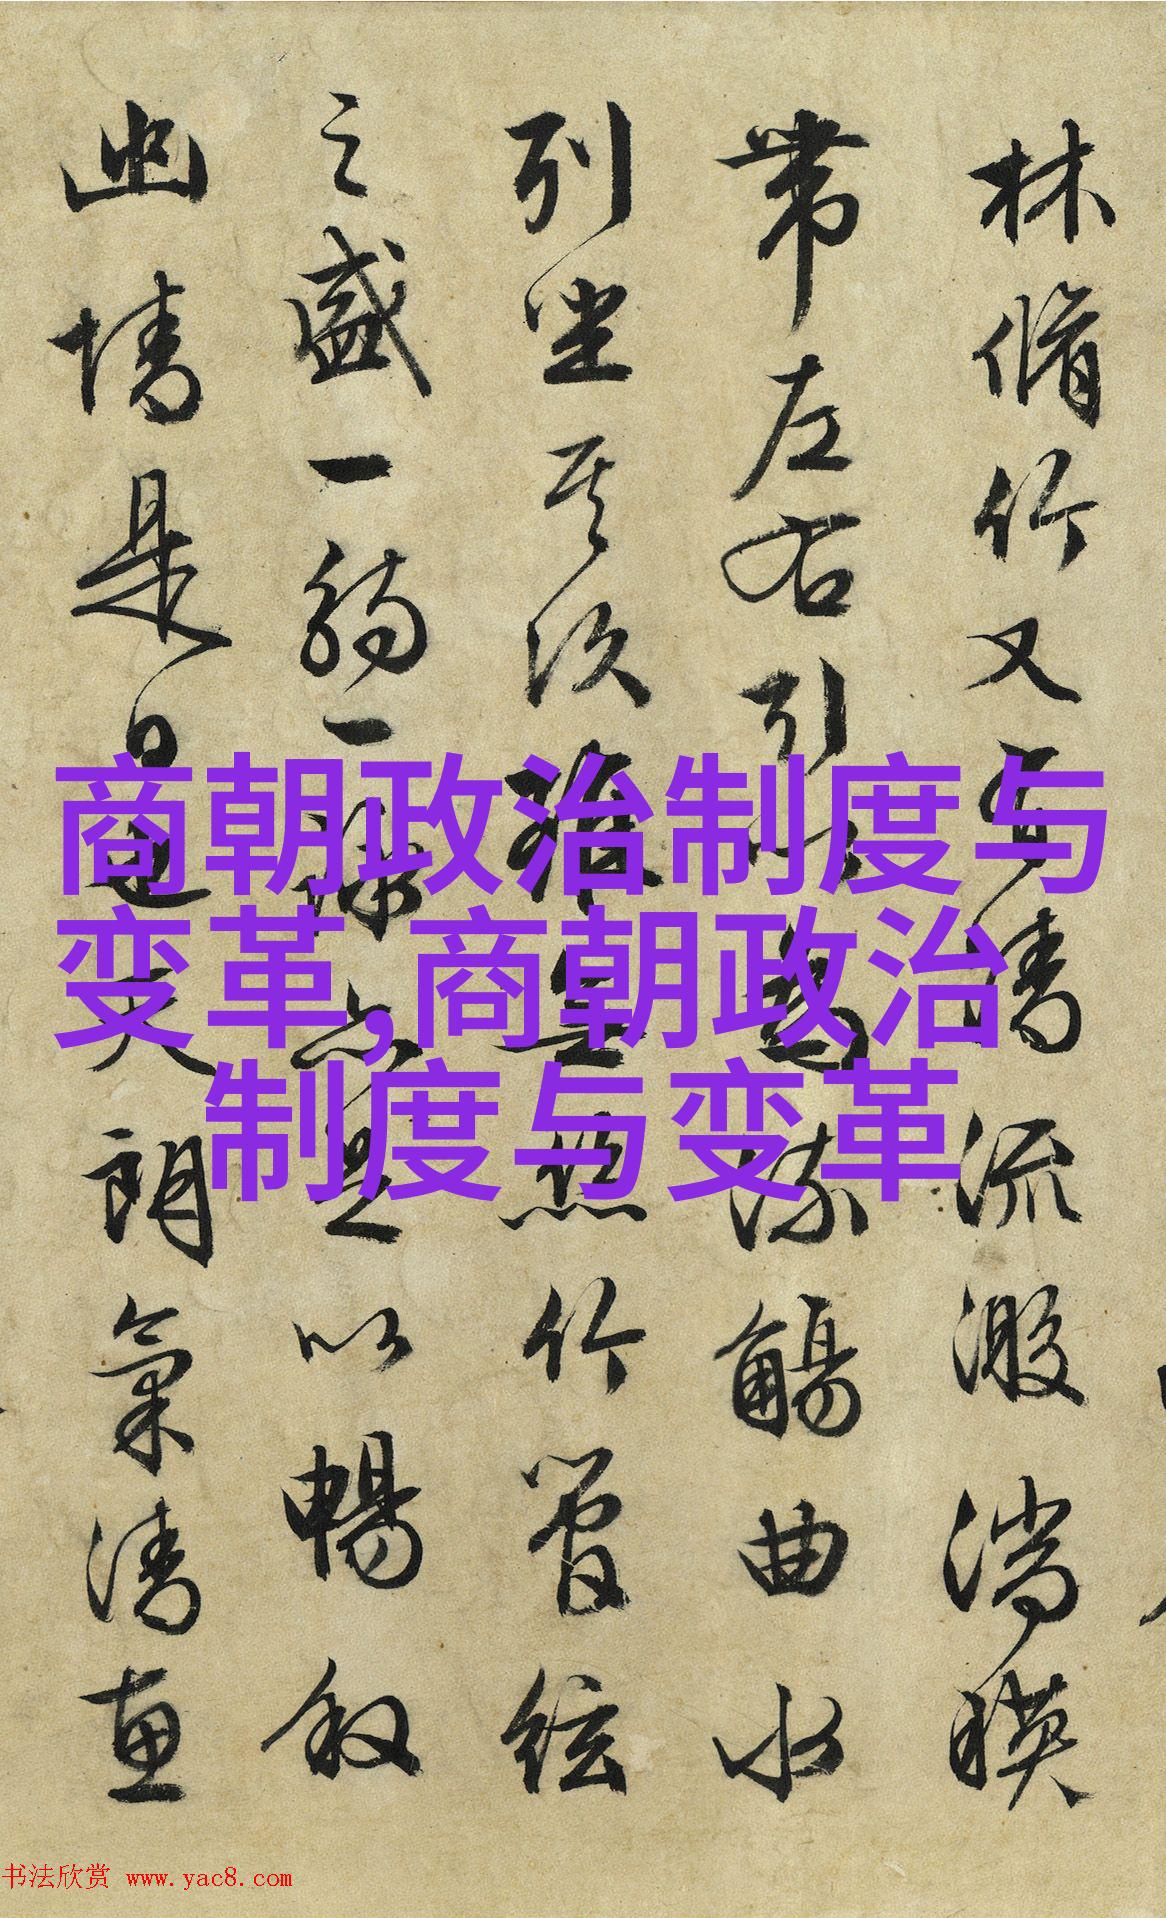 林脩竹又有清流激湍暎
帶左右引以為流觴曲水
列坐其次雖無絲竹管絃
之盛一觴一詠亦足以暢叙
幽情是日也天朗氣清惠
商朝政治制度与
变革,商朝政治
制度与变革
书法欣赏 www.yac8.com